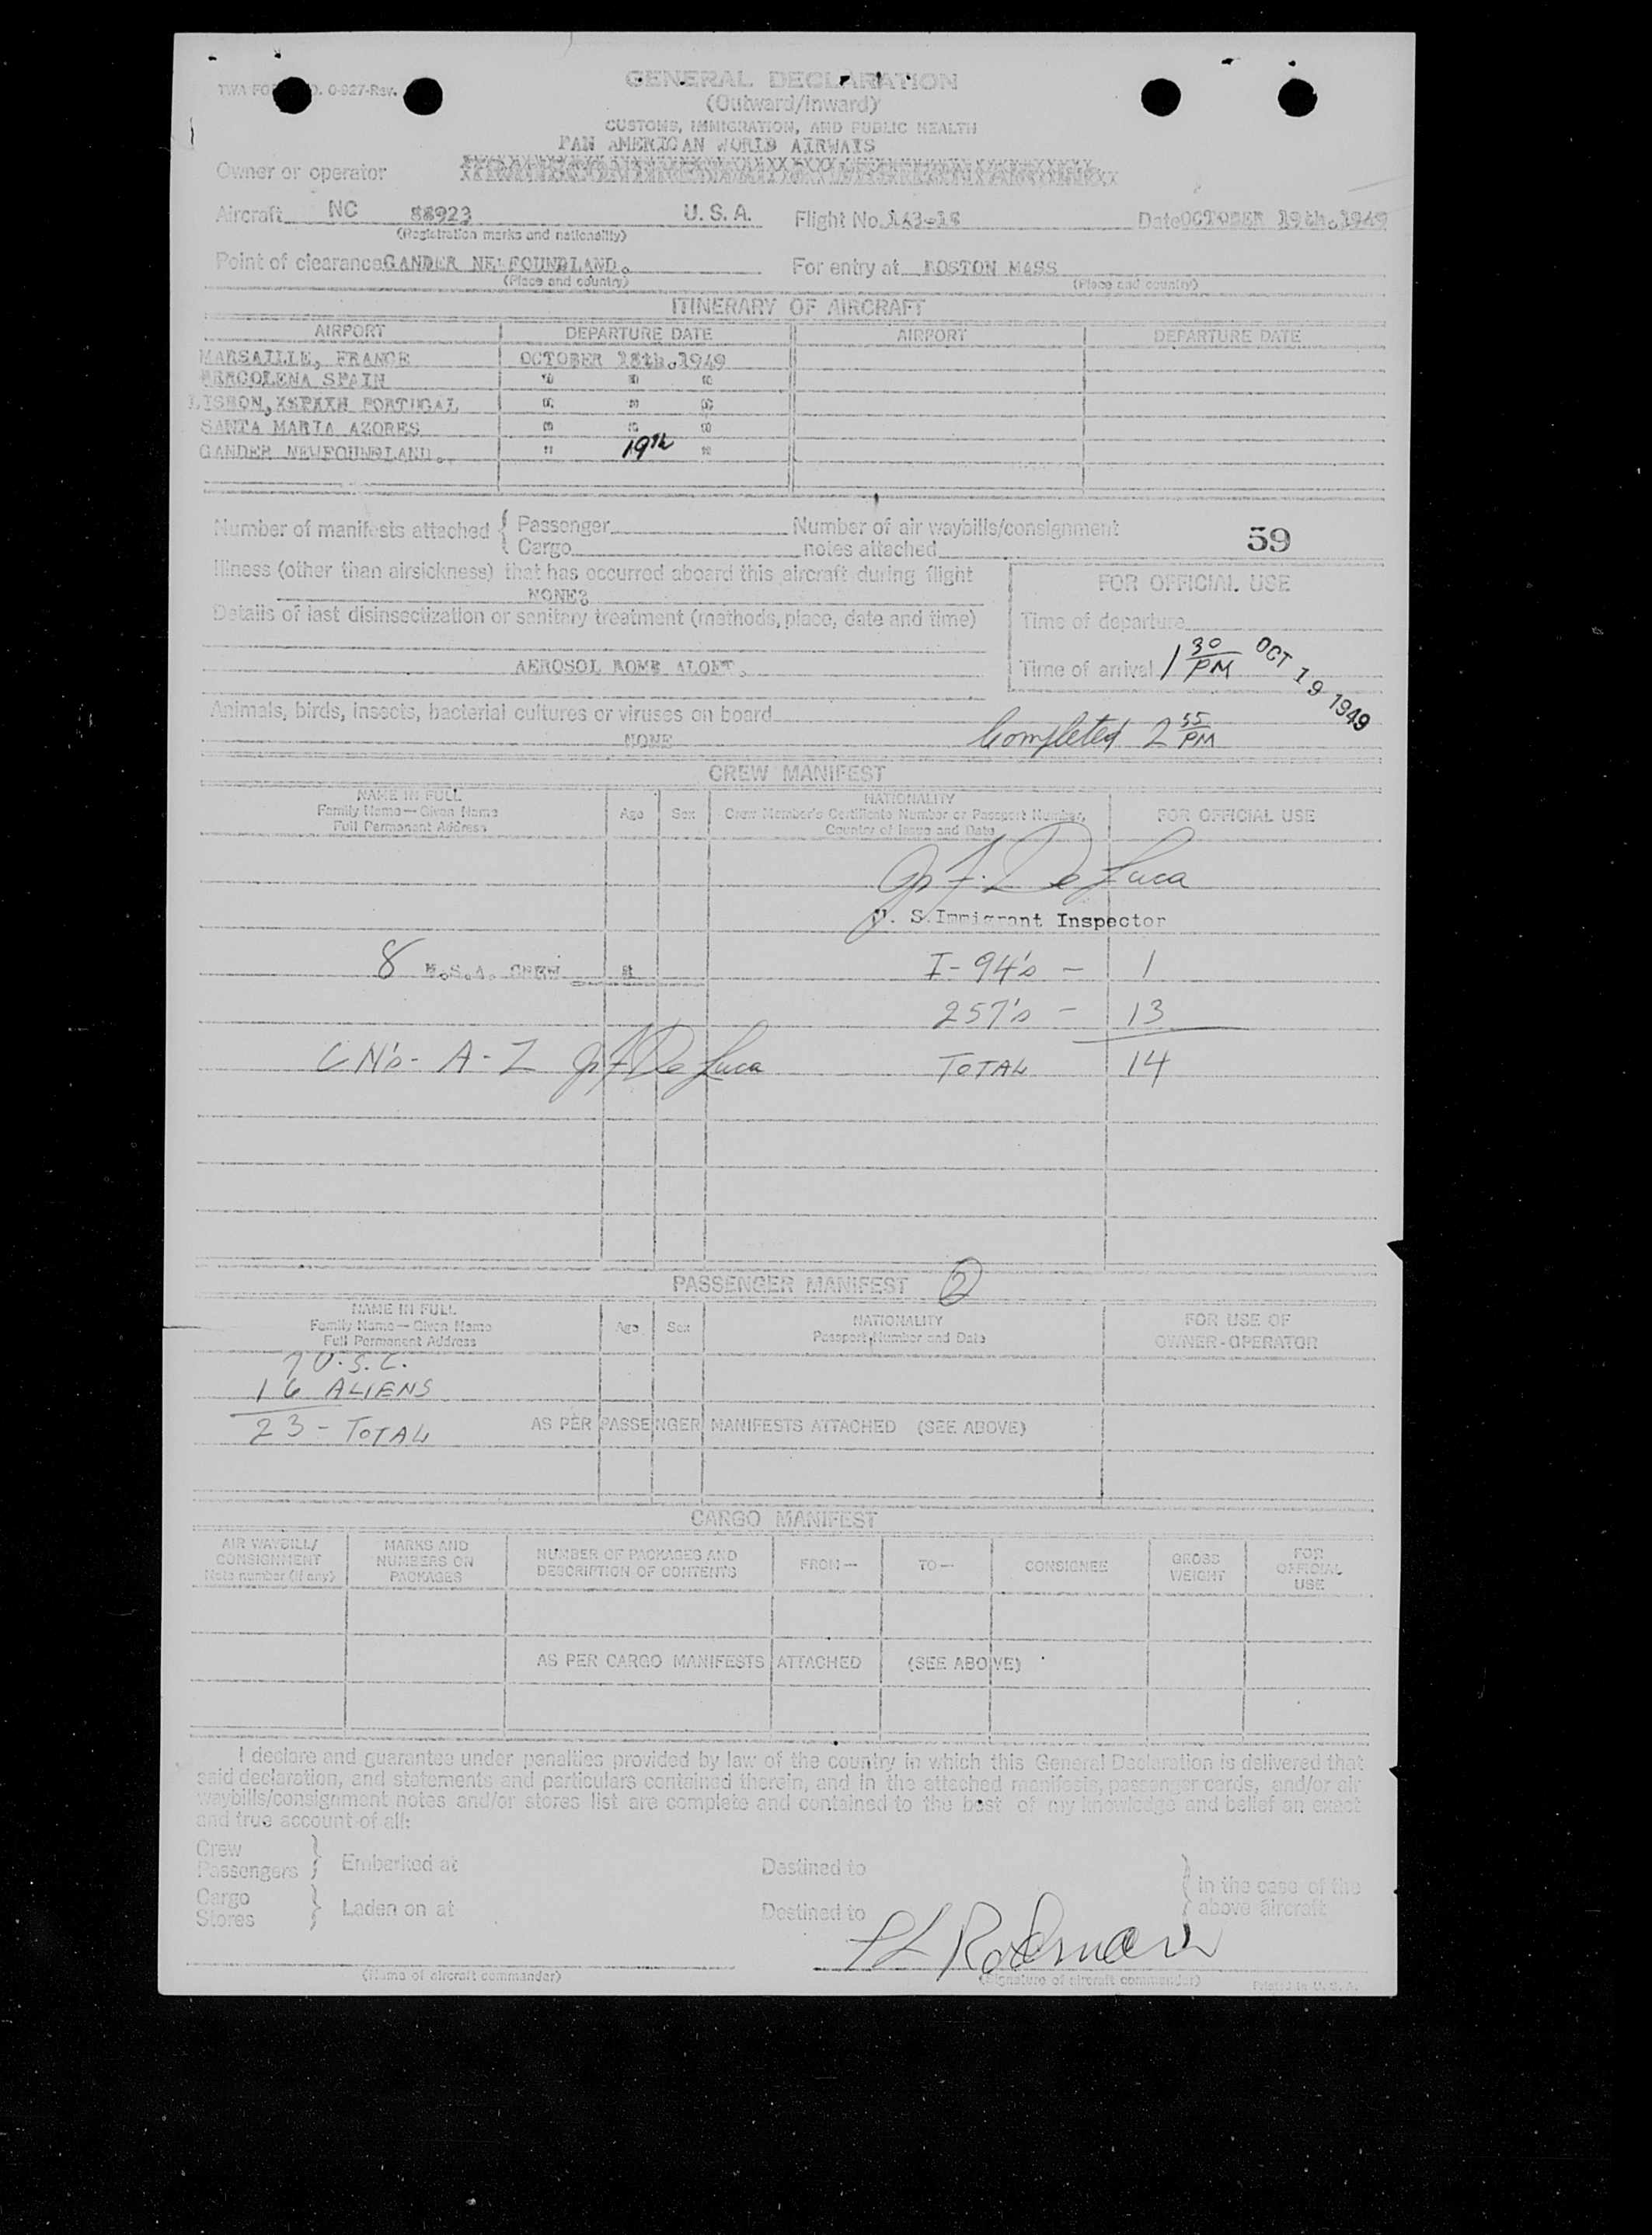 GENERAL DECLARATION
(Outward/Inward)
CUSTOMS, IMMIGRATION, AND PUBLIC HEALTH
PAN AMERICAN WORLD AIRWAYS
Owner or operator
Aircraft NC 88923 U. S. A. Flight No. 163-18 Date OCTOBER 19th.1949
(Registration marks and nationality)
Point of clearance GANDER NEWFOUNDLAND. For entry at BOSTON MASS
(Place and country) (Place and country)
ITINERARY OF AIRCRAFT
AIRPORT DEPARTURE DATE AIRPORT DEPARTURE DATE
MARSAILLE, FRANCE OCTOBER 18th.1949
SPAIN " " "
LISBON, PORTUGAL " " "
SANTA MARIA AZORES " " "
GANDER NEWFOUNDLAND. " 19th "
Number of manifests attached { Passenger Number of air waybills/consignment 59
Cargo notes attached
Illness (other than airsickness) that has occurred aboard this aircraft during flight
NONE
FOR OFFICIAL USE
Details of last disinsectization or sanitary treatment (methods, place, date and time)
Time of departure
AEROSOL BOMB ALOFT.
Time of arrival 1 30 PM OCT 19 1949
Animals, birds, insects, bacterial cultures or viruses on board
NONE Completed 2 55 PM
CREW MANIFEST
NAME IN FULL
Family Name—Given Name
Full Permanent Address
Age Sex
NATIONALITY
Crew Member's Certificate Number or Passport Number,
Country of Issue and Date
FOR OFFICIAL USE
De Luca
U. S. Immigrant Inspector
8 U.S.A. CREW I-94's - 1
257's - 13
CN's - A-Z De Luca TOTAL 14
PASSENGER MANIFEST 2
NAME IN FULL
Family Name—Given Name
Full Permanent Address
Age Sex
NATIONALITY
Passport Number and Date
FOR USE OF
OWNER-OPERATOR
7 U.S.C.
16 ALIENS
23 - TOTAL AS PER PASSENGER MANIFESTS ATTACHED (SEE ABOVE)
CARGO MANIFEST
AIR WAYBILL/
CONSIGNMENT
Note number (if any)
MARKS AND
NUMBERS ON
PACKAGES
NUMBER OF PACKAGES AND
DESCRIPTION OF CONTENTS
FROM— TO— CONSIGNEE
GROSS
WEIGHT
FOR
OFFICIAL
USE
AS PER CARGO MANIFESTS ATTACHED (SEE ABOVE)
I declare and guarantee under penalties provided by law of the country in which this General Declaration is delivered that
said declaration, and statements and particulars contained therein, and in the attached manifests, passenger cards, and/or air
waybills/consignment notes and/or stores list are complete and contained to the best of my knowledge and belief an exact
and true account of all:
Crew
Passengers } Embarked at Destined to
Cargo
Stores } Laden on at Destined to
} in the case of the
above aircraft
(Name of aircraft commander) (Signature of aircraft commander) Printed in U. S. A.